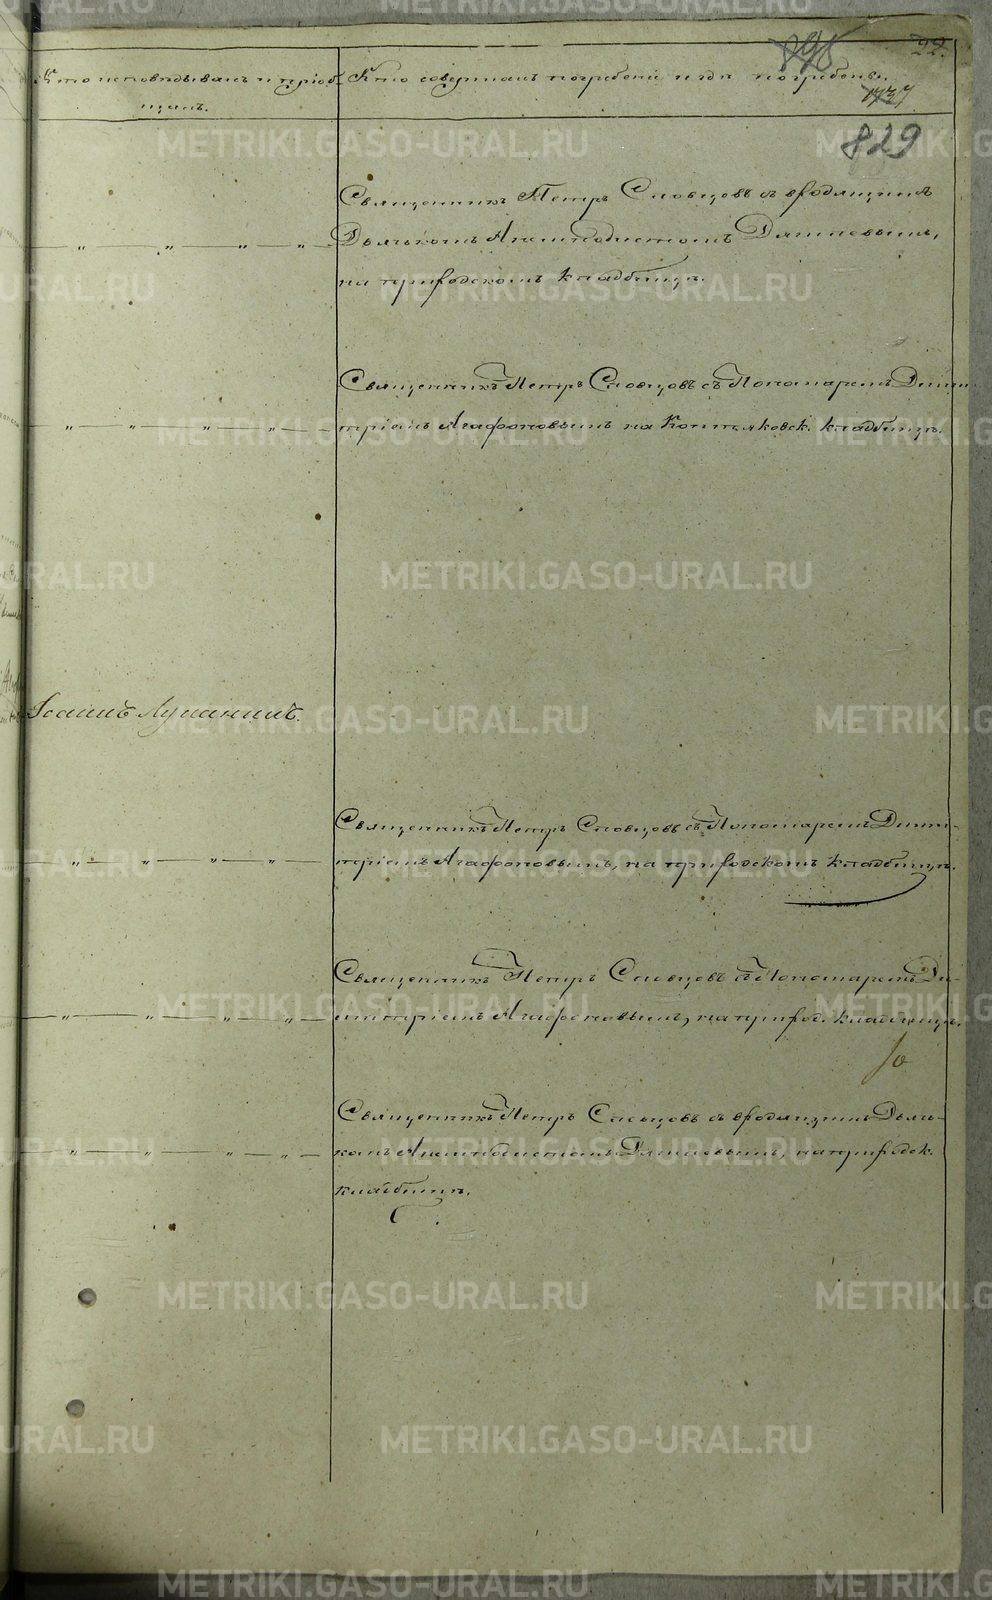 895 22.
Кто исповѣдывалъ и пріоб- Кто совершалъ погребеніе и гдѣ погребены.
щалъ.
1737
829
Священникъ Петръ Словцовъ съ
Дьячкомъ
на приходскомъ кладбищѣ.
Священникъ Петръ Словцовъ съ Пономаремъ Дими-
тріемъ Агафоновымъ на кладбищѣ.
Іоаннъ Лупанинъ.
Священникъ Петръ Словцовъ съ Пономаремъ Дими-
тріемъ Агафоновымъ, на приходскомъ кладбищѣ.
Священникъ Петръ Словцовъ съ Пономаремъ Ди-
митріемъ Агафоновымъ, на приход. кладбищѣ.
Священникъ Петръ Словцовъ съ Дьяч-
на приходск.
кладбищѣ.
METRIKI.GASO-URAL.RU